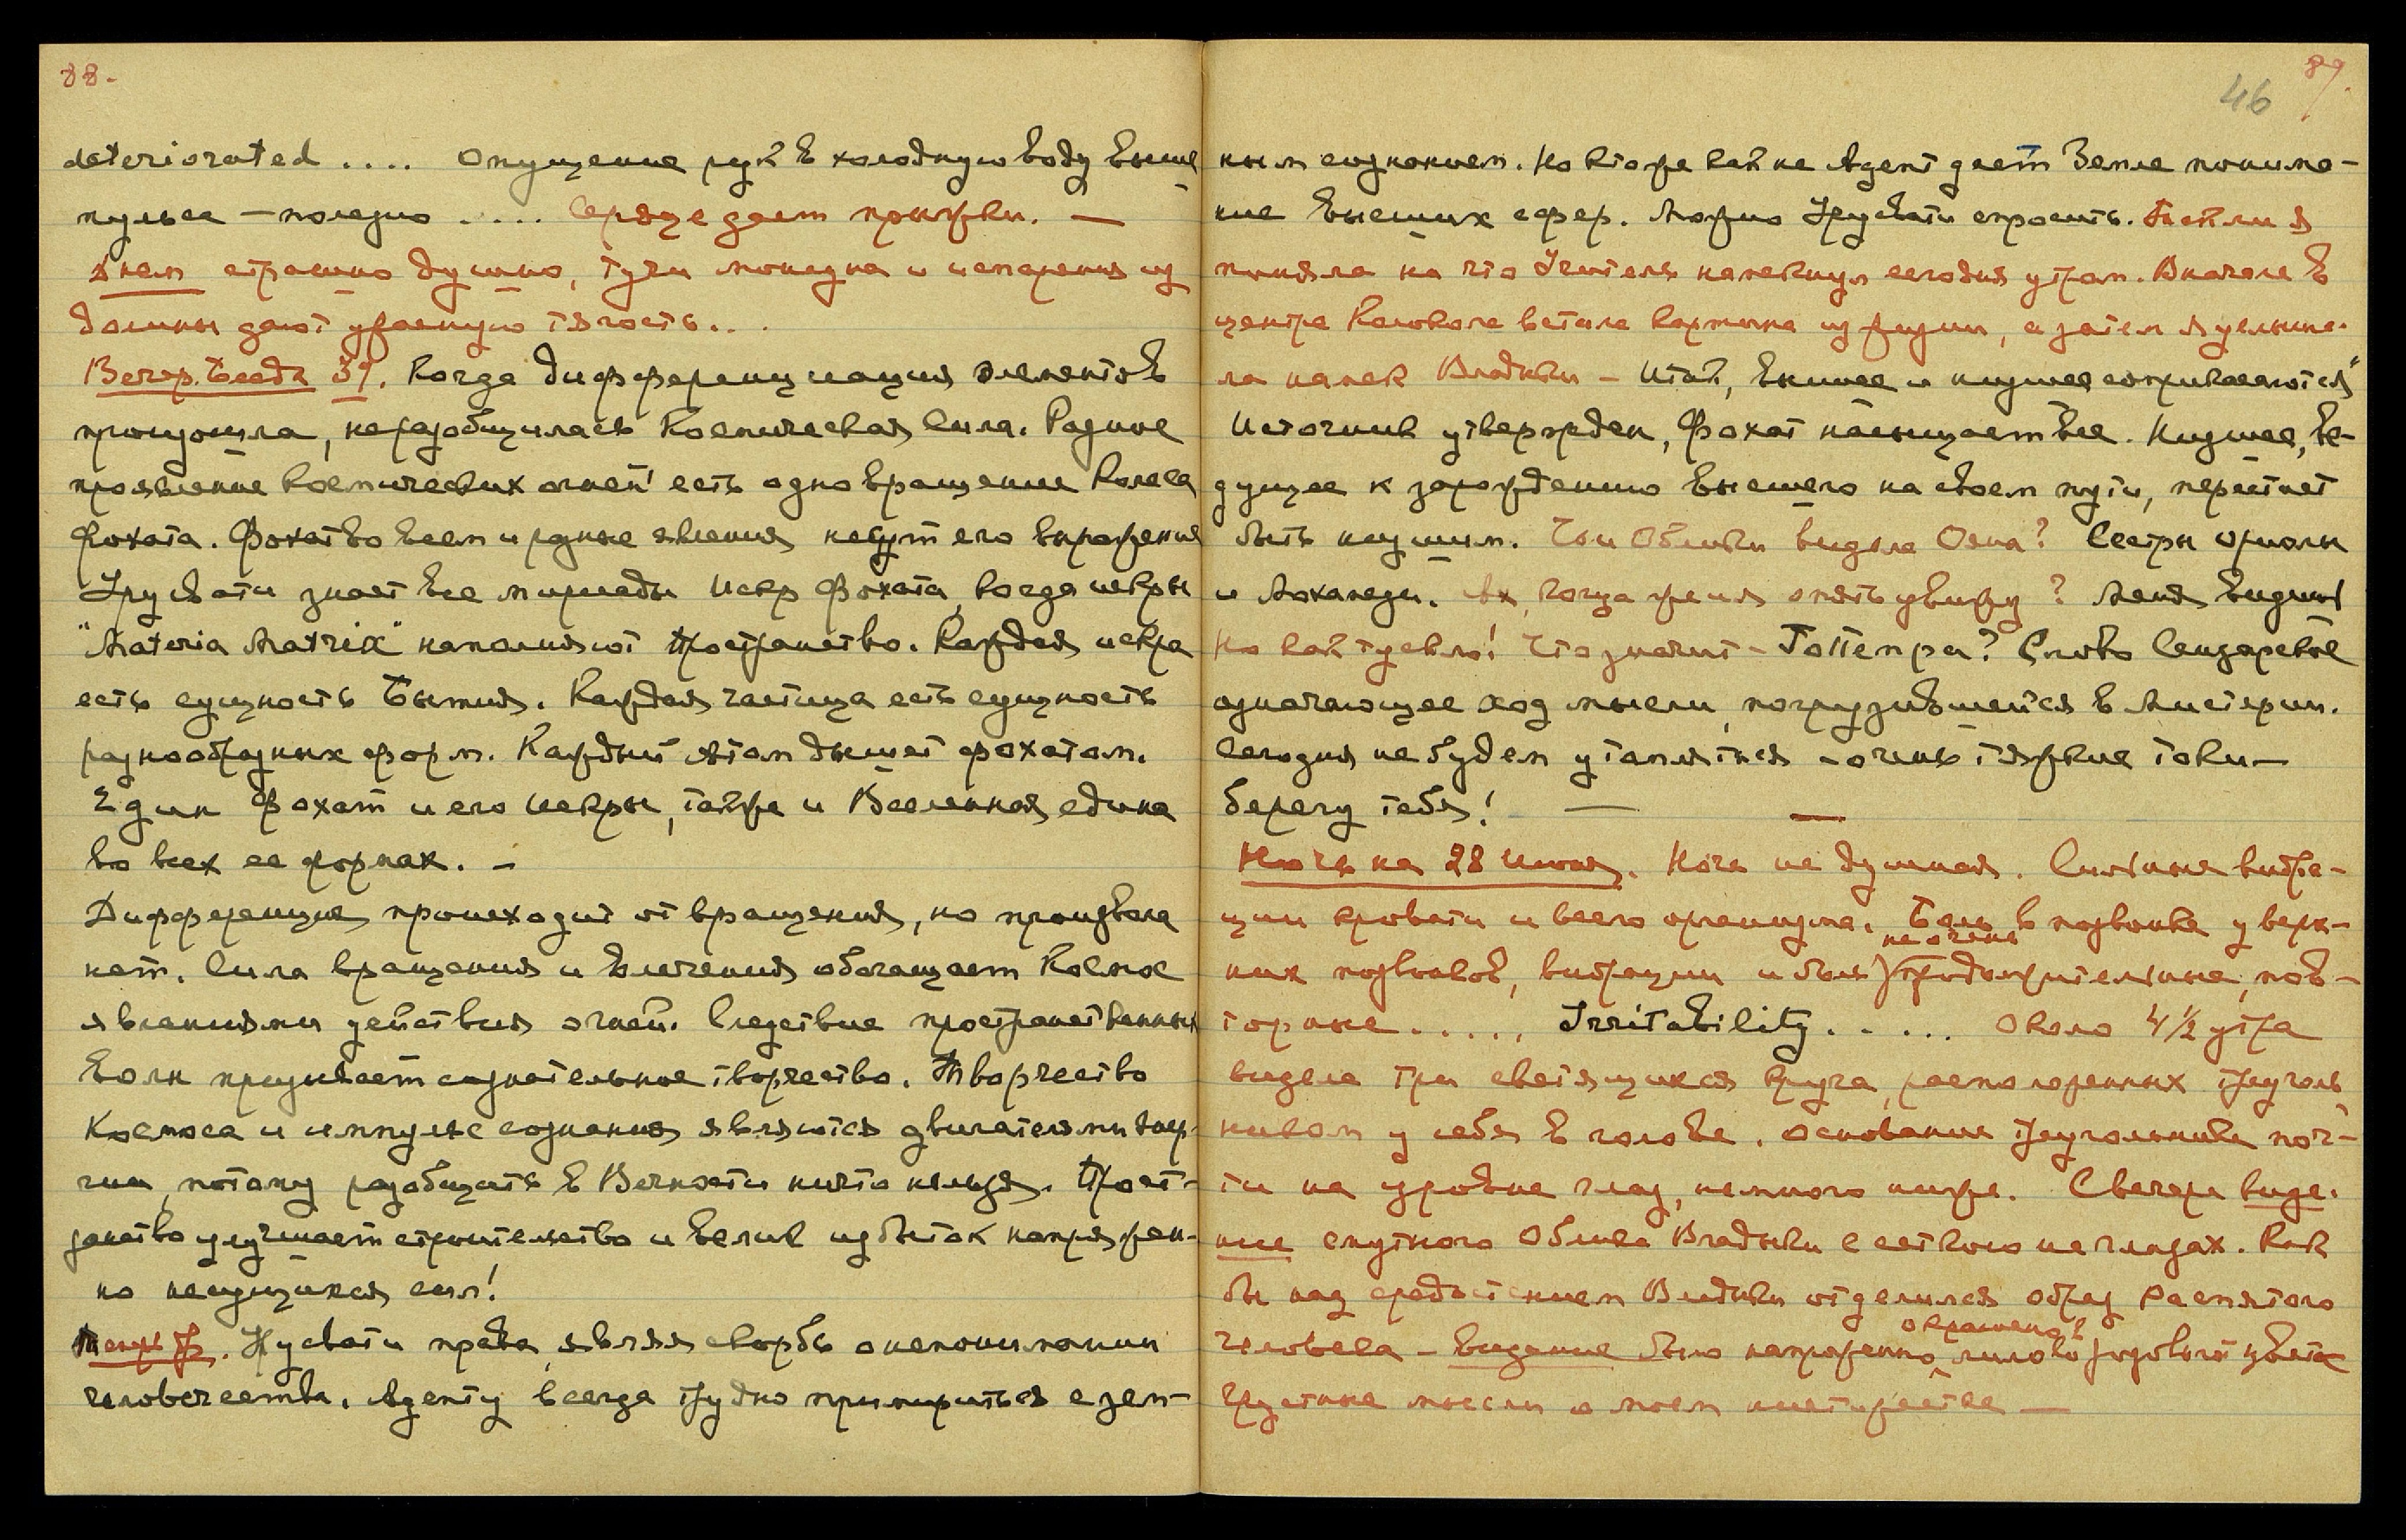 88-
deteriorated .... Опущение рук в холодную воду выше
пульса – полезно ..... Сердце дает прыжки. —
Днем страшно душно, тучи монзуна и испарения из
долины дают ужасную тягость...
Вечер. Беседа 39. Когда дифференциация элементов
произошла, неразобщилась Космическая Сила. Разное
проявление космических огней есть одно вращение Колеса
Фохата. Фохат во всем и разные явления несут его выражения
Урусвати знает все мириады Искр Фохата, когда искры
"Materia Matrix" наполняют Пространство. Каждая искра
есть сущность Бытия. Каждая частица есть сущность
разнообразных форм. Каждый Атом дышет фохатом.
Един Фохат и его Искры, также и Вселенная едина
во всех ее формах. –
Дифференция происходит от вращения, но произвола
нет. Сила вращения и влечения обогащает Космос
явлениями действия огней. Следствие пространственных
волн призывает сознательное творчество. Творчество
Космоса и импульс сознания являются двигателями энер-
гии, потому разобщить в Вечности ничто нельзя. Прост-
ранство улучшает строительство и велик избыток напряжен-
но ищущихся сил!
Урусвати права, являя скорбь о непонимании
человечества. Агенту всегда трудно примириться с зем-
89.
46
ным сознанием. Но кто же как не Агент дает Земле понима-
ние высших сфер. Можно Урусвати спросить. Так ли я
поняла на что Учитель намекнул сегодня утром. Вначале в
центре Колокола встала картина из жизни, а затем я услыша-
ла намек Владыки – Итак, высшее и низшее соприкасаются"
Источник утвержден, Фохат насыщает все. Низшее, ве-
дущее к зарождению высшего на своем пути, перестает
быть низшим. Чьи Облики видела Ояна? Сестры Ориолы
и Мохамеди. Ах, когда же я опять увижу? Меня видишь
Но как тускло! Что значит – Топпепра? Слово Сензарское
означающее ход мысли, погрузившейся в Мистерии.
Сегодня не будем утомляться – очень тяжкие токи –
берегу тебя! —
Ночь на 28 Июня. Ночь не душная. Сильные вибра-
ции кровати и всего организма. Боль в позвонке у верх-
них позвонков, вибрации и боли не очень продолжительные, пов-
торные ..... Irritability ..... Около 4½ утра
видела три светящихся круга, расположенных треуголь-
ником у себя в голове. Основание треугольника поч-
ти на уровне глаз, немного ниже. С вечера виде-
ние смутного Облика Владыки с сеткою на глазах. Как
бы над средостением Владыки отделился образ Распятого
человека – видение было напряженно окрашено в лилово розовый цвета
Грустные мысли о моем ничтожестве —